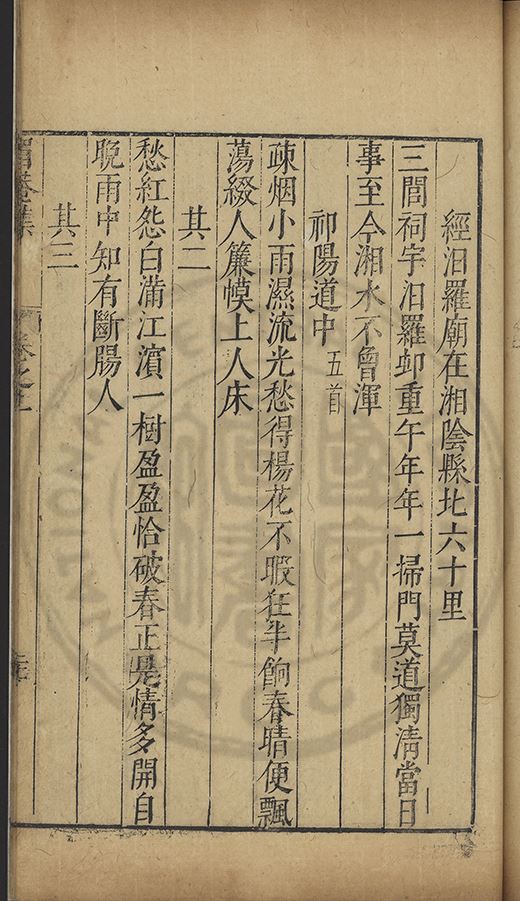 經汨羅廟在湘陰縣北六十里
三閭祠宇汨羅邨重午年年一掃門莫道獨清當日
事至今湘水不曾渾
祁陽道中 五首
疎烟小雨濕流光愁得楊花不暇狂半餉春晴便飄
蕩綴人簾幙上人床
其二
愁紅怨白滿江濵一樹盈盈恰破春正是情多開自
晚雨中知有斷腸人
其三